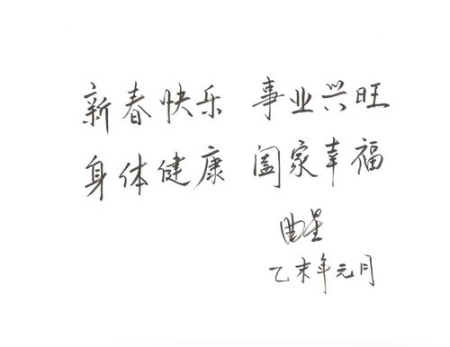 新春快乐 事业兴旺
身体健康 阖家幸福
曲星
乙未年元月